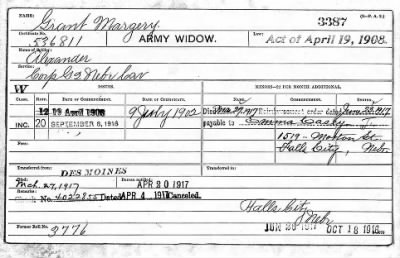 NAME: Grant Margery. 3387 (D.-P. A. 2.)
Certificate No. 536811 ARMY WIDOW. Law: Act of April 19, 1908.
Name of Soldier: Alexander
Service: Corp G 2 Nebr Cav
W SOLDIER. MINORS—$2 PER MONTH ADDITIONAL.
CLASS. RATE. DATE OF COMMENCEMENT. DATE OF CERTIFICATE.
12 19 April 1908 9 July 1902 Died Mch 27, 1917 order dated June 22, 1917
INC. 20 SEPTEMBER 8, 1916 payable to Emma Casky
1519 - Morton St.
Falls City, Nebr
Transferred from DES MOINES
Died Mch. 27, 1917 Bureau notified: APR 20 1917
Remarks:
Check No. 4022855 Dated APR 4 1917 Canceled.
Falls City
Nebr
Former Roll No. 3776 JUN 26 1917 OCT 18 1916